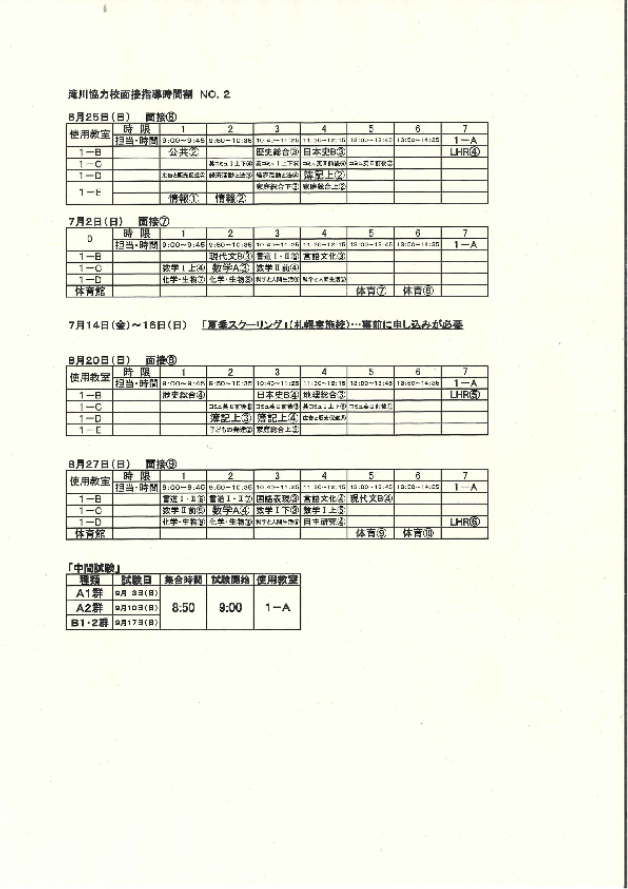 滝川協力校面接指導時間割 NO.2
6月25日(日) 面接⑥
使用教室 時 限 1 2 3 4 5 6 7
担当・時間 9:00~9:45 9:50~10:35 10:40~11:25 11:30~12:15 13:00~13:45 13:50~14:35 1-A
1-B 公共② 歴史総合③ 日本史B③ LHR④
1-C
1-D 簿記上②
1-E 家庭総合下② 家庭総合上②
情報① 情報②
7月2日(日) 面接⑦
0 時 限 1 2 3 4 5 6 7
担当・時間 9:00~9:45 9:50~10:35 10:40~11:25 11:30~12:15 13:00~13:45 13:50~14:35 1-A
1-B 現代文B③ 書道Ⅰ・Ⅱ⑤ 言語文化③
1-C 数学Ⅰ上④ 数学A③ 数学Ⅱ前④
1-D 化学・生物⑦ 化学・生物⑧
体育館 体育⑦ 体育⑧
7月14日(金)~16日(日) 「夏季スクーリング」(札幌実施校)…事前に申し込みが必要
8月20日(日) 面接⑧
使用教室 時 限 1 2 3 4 5 6 7
担当・時間 9:00~9:45 9:50~10:35 10:40~11:25 11:30~12:15 13:00~13:45 13:50~14:35 1-A
1-B 歴史総合④ 日本史B④ 地理総合③ LHR⑤
1-C
1-D 簿記上③ 簿記上④
1-E 子どもの発達② 家庭総合上③
8月27日(日) 面接⑨
使用教室 時 限 1 2 3 4 5 6 7
担当・時間 9:00~9:45 9:50~10:35 10:40~11:25 11:30~12:15 13:00~13:45 13:50~14:35 1-A
1-B 書道Ⅰ・Ⅱ⑥ 書道Ⅰ・Ⅱ⑦ 国語表現③ 言語文化④ 現代文B④
1-C 数学Ⅱ前⑤ 数学A④ 数学Ⅰ下③ 数学Ⅰ上⑤
1-D 化学・生物⑨ 化学・生物⑩ LHR⑥
体育館 体育⑨ 体育⑩
「中間試験」
種類 試験日 集合時間 試験開始 使用教室
A1群 9月 3日(日)
A2群 9月10日(日) 8:50 9:00 1-A
B1・2群 9月17日(日)